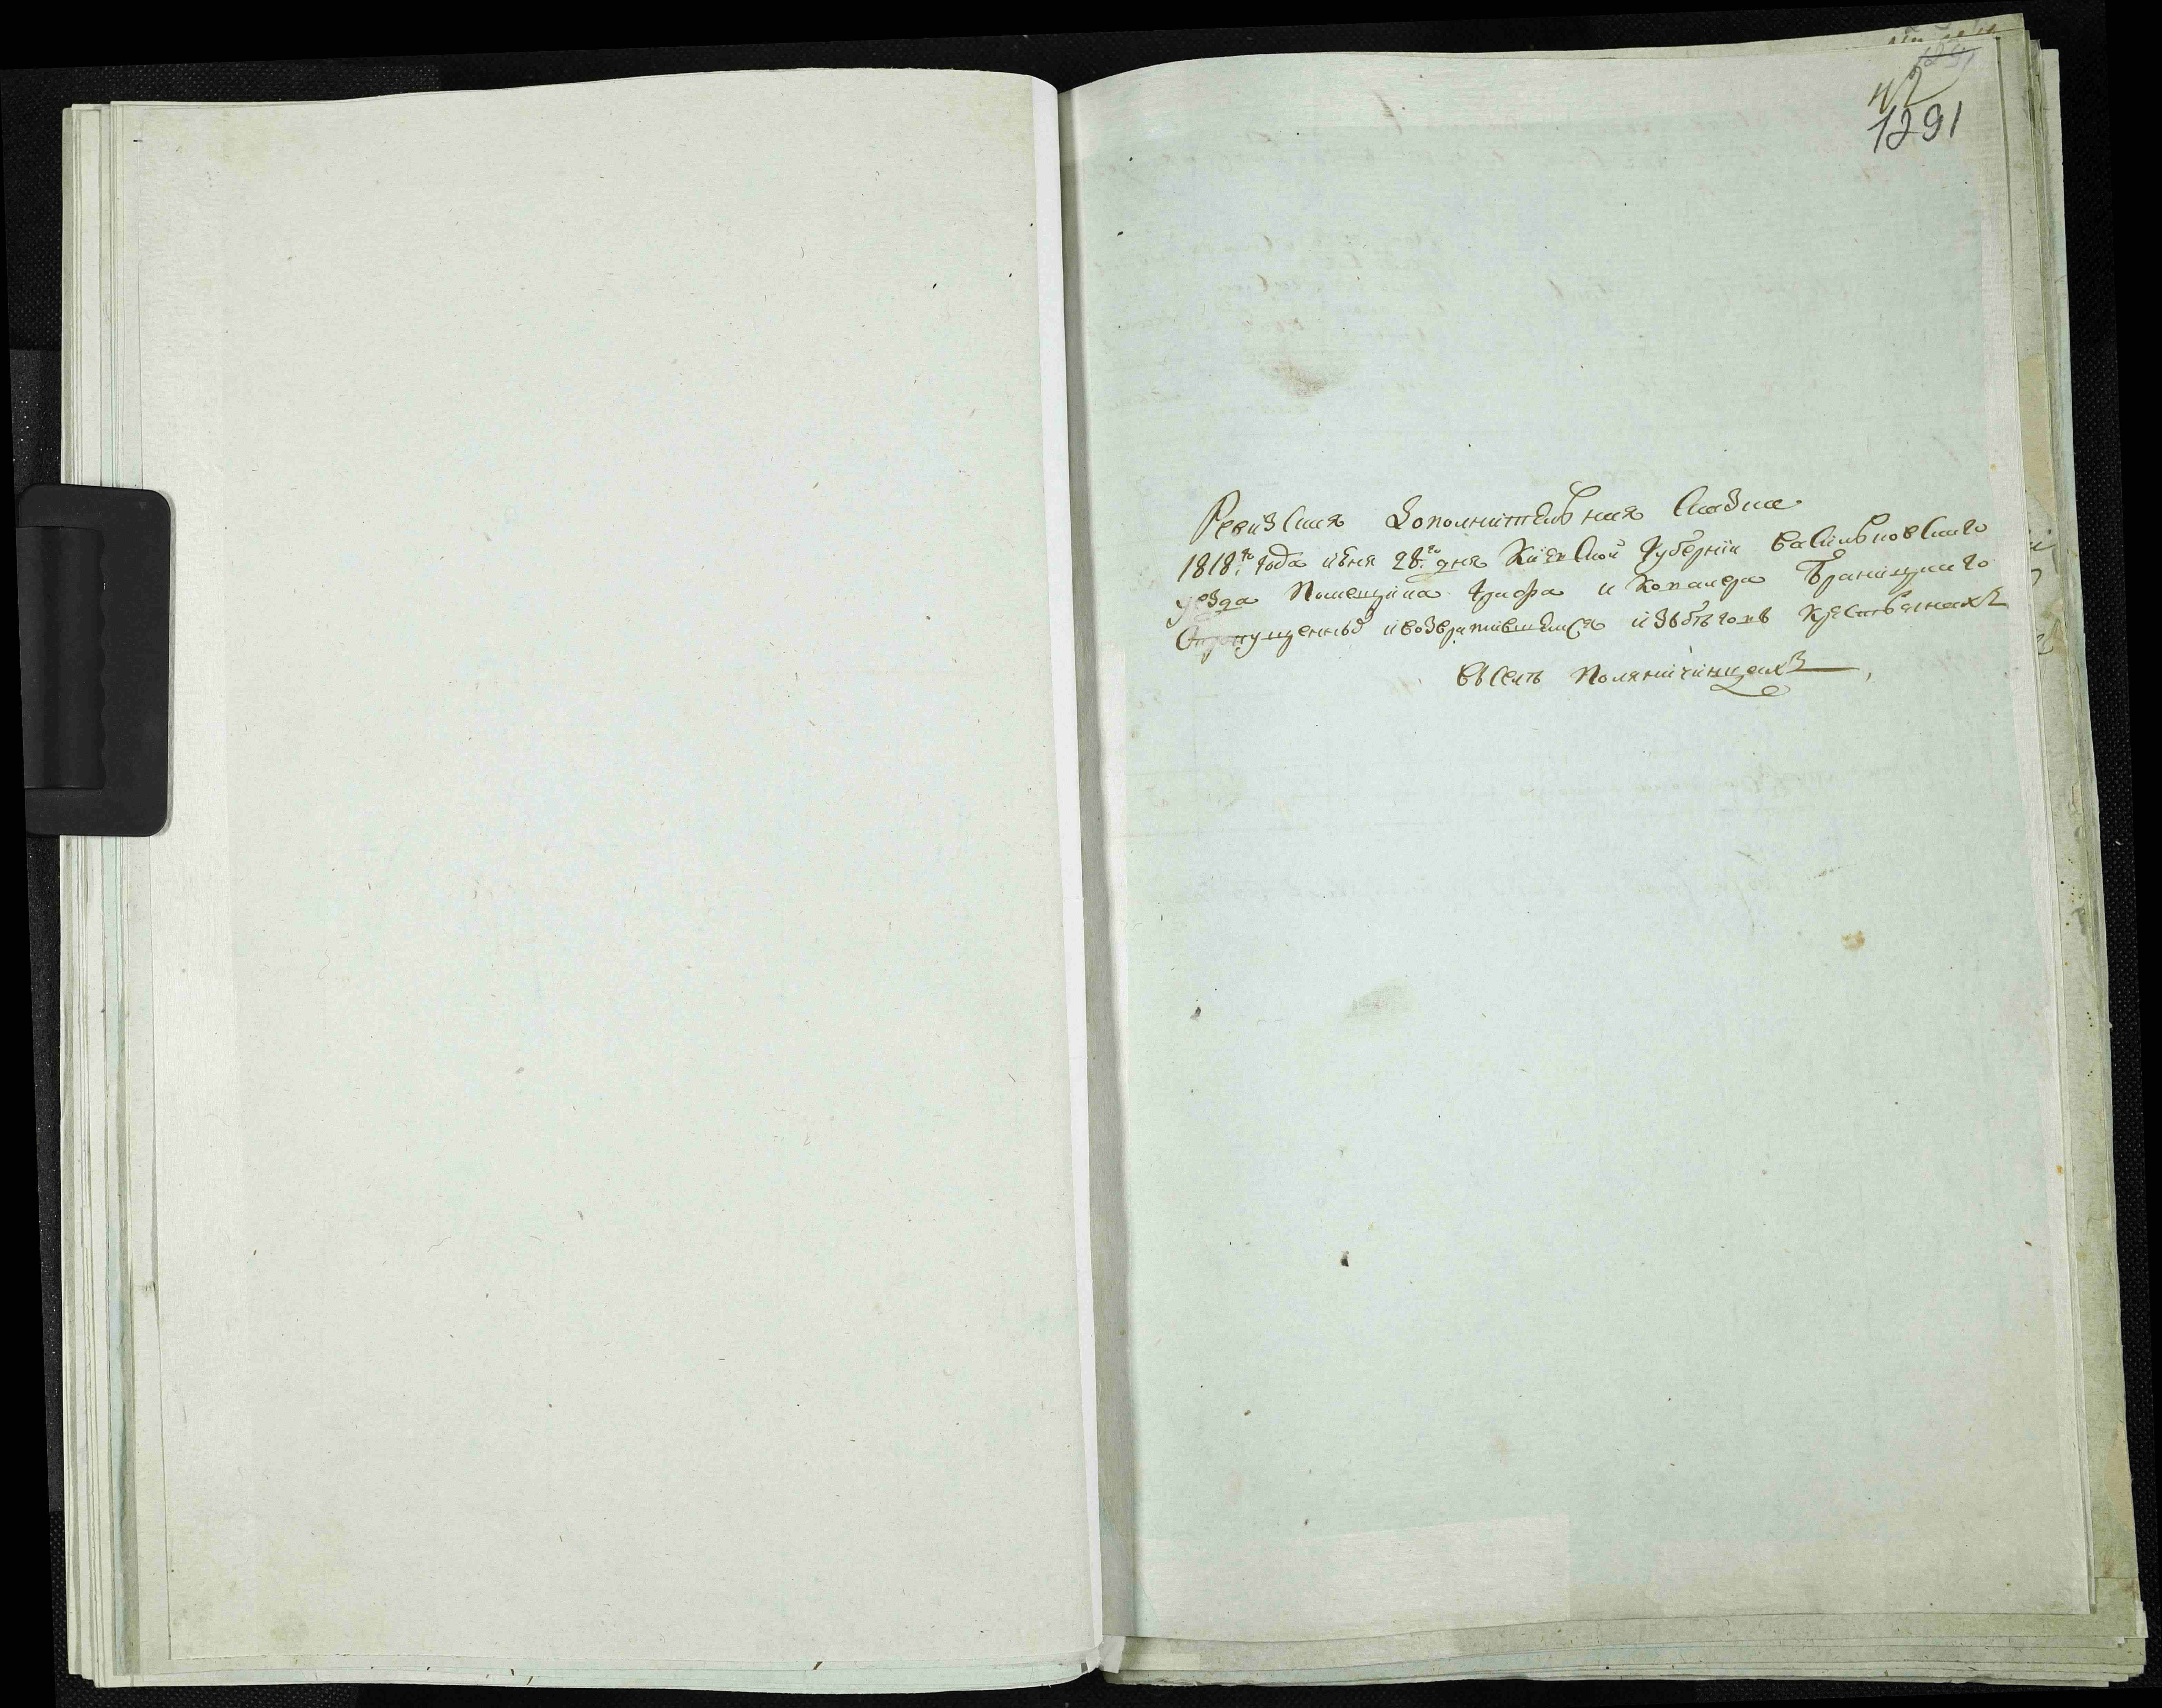 42
1291
Ревизская Дополнителная Сказка
1818го года июня 28го дня Киевской Губернии Васильковского
уезда Помещика Графа и Ковалера Браницкаго
О пропущенныхъ и возвратившихся изъ бѣговъ Крестьянахъ
въ Селѣ Поляничинцахъ